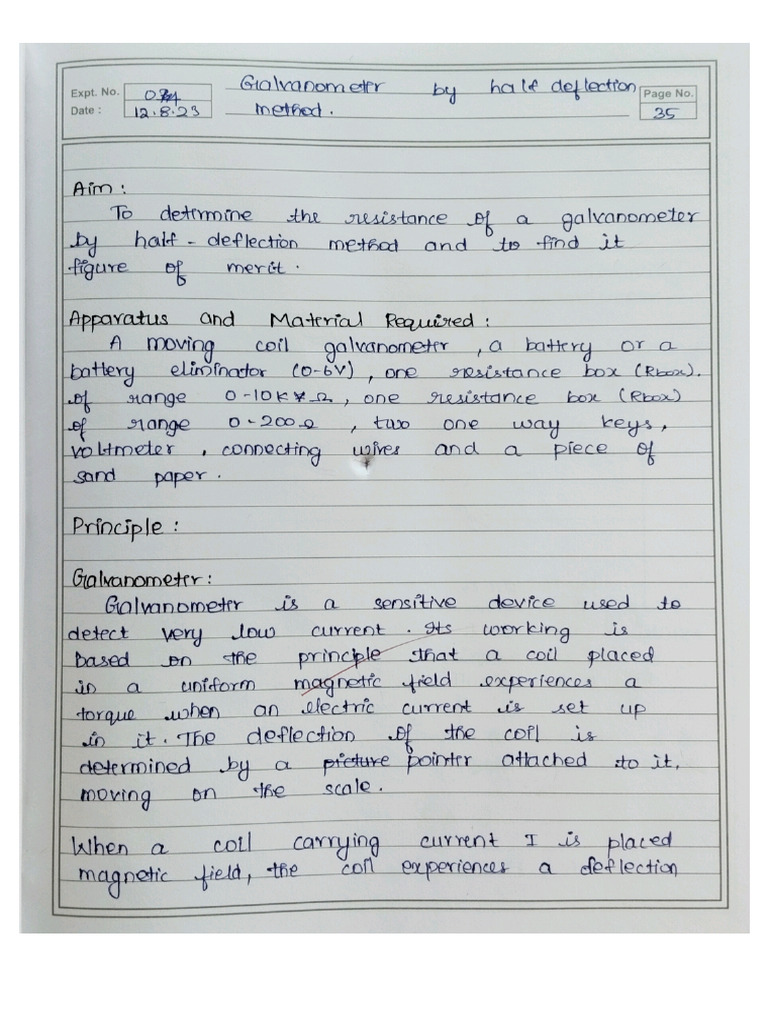 Expt. No. 
Galvanometer by half deflection
Page No.
Date : 12.8.23
method.
35
Aim :
To determine the resistance of a galvanometer
by half - deflection method and to find it
figure of merit.
Apparatus and Material Required :
A moving coil galvanometer, a battery or a
battery eliminator (0-6V), one resistance box (Rbox).
of range 0-10K Ω, one resistance box (Rbox)
of range 0-200Ω, two one way keys,
voltmeter, connecting wires and a piece of
sand paper.
Principle :
Galvanometer :
Galvanometer is a sensitive device used to
detect very low current. Its working is
based on the principle that a coil placed
in a uniform magnetic field experiences a
torque when an electric current is set up
in it. The deflection of the coil is
determined by a picture pointer attached to it,
moving on the scale.
When a coil carrying current I is placed
magnetic field, the coil experiences a deflection